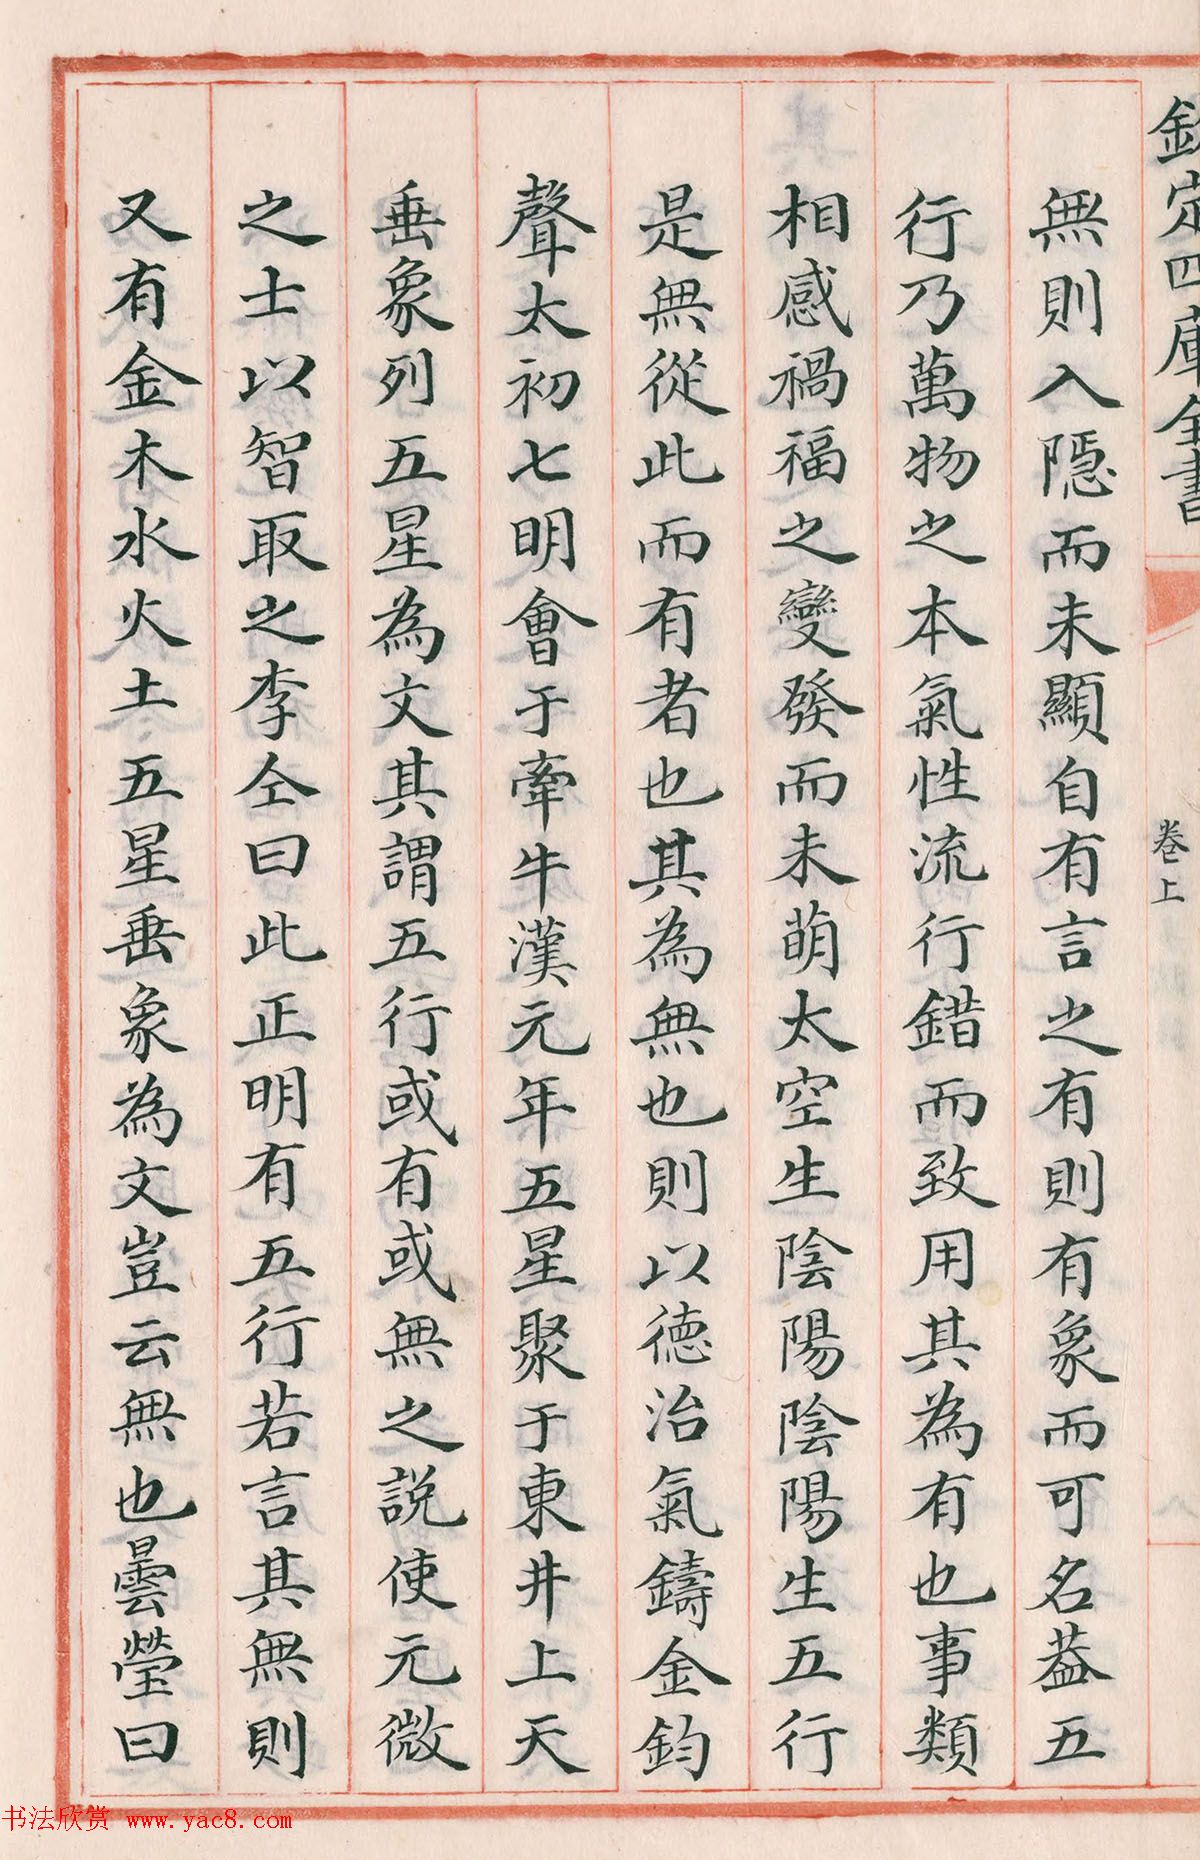 欽定四庫全書
卷上
無則入隱而未顯自有言之有則有象而可名葢五
行乃萬物之本氣性流行錯而致用其為有也事類
相感禍福之變發而未萌太空生陰陽陰陽生五行
是無從此而有者也其為無也則以德治氣鑄金鈞
聲太初七明會于牽牛漢元年五星聚于東井上天
垂象列五星為文其謂五行或有或無之説使元微
之士以智取之李仝曰此正明有五行若言其無則
又有金木水火土五星垂象為文豈云無也曇瑩曰
书法欣赏 www.yac8.com